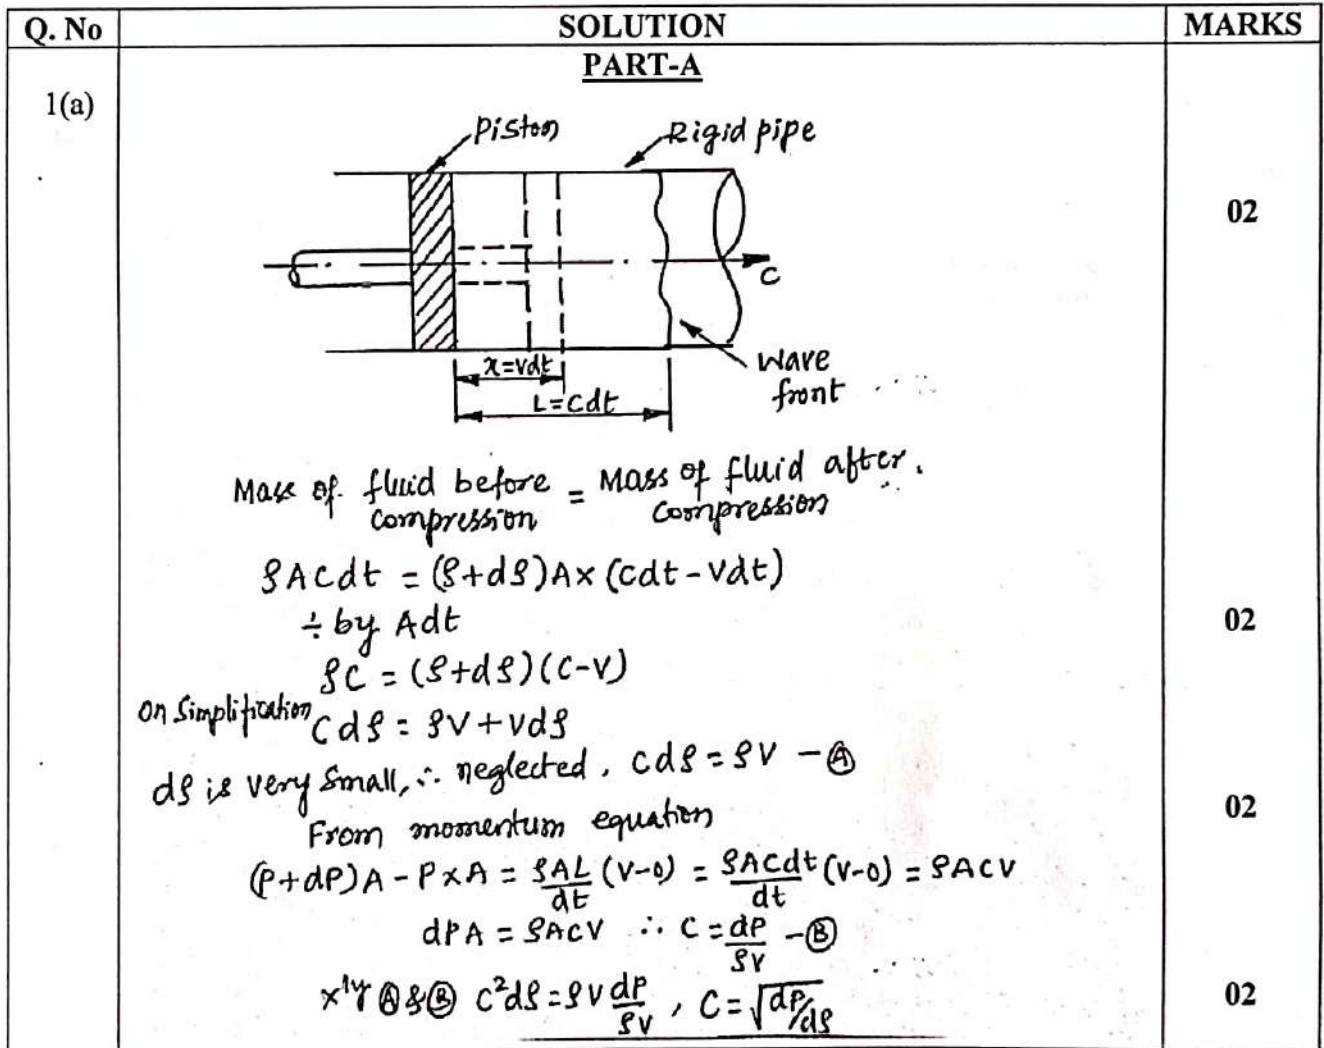 Q. No SOLUTION MARKS
PART-A
1(a)
Piston Rigid pipe
02
C
x=vdt
L=Cdt
Wave
front
Mass of fluid before = Mass of fluid after.
compression compression
ρACdt = (ρ+dρ)A×(Cdt-Vdt)
÷ by Adt
02
ρC = (ρ+dρ)(C-V)
on Simplification Cdρ = ρV+Vdρ
dρ is very small, ∴ neglected, Cdρ = ρV - Ⓐ
02
From momentum equation
(P+dP)A - P×A = ρAL/dt (V-0) = ρACdt/dt (V-0) = ρACV
dPA = ρACV ∴ C = dP/ρV - Ⓑ
xly Ⓐ & Ⓑ C²dρ = ρV dP/ρV , C = √dP/dρ
02